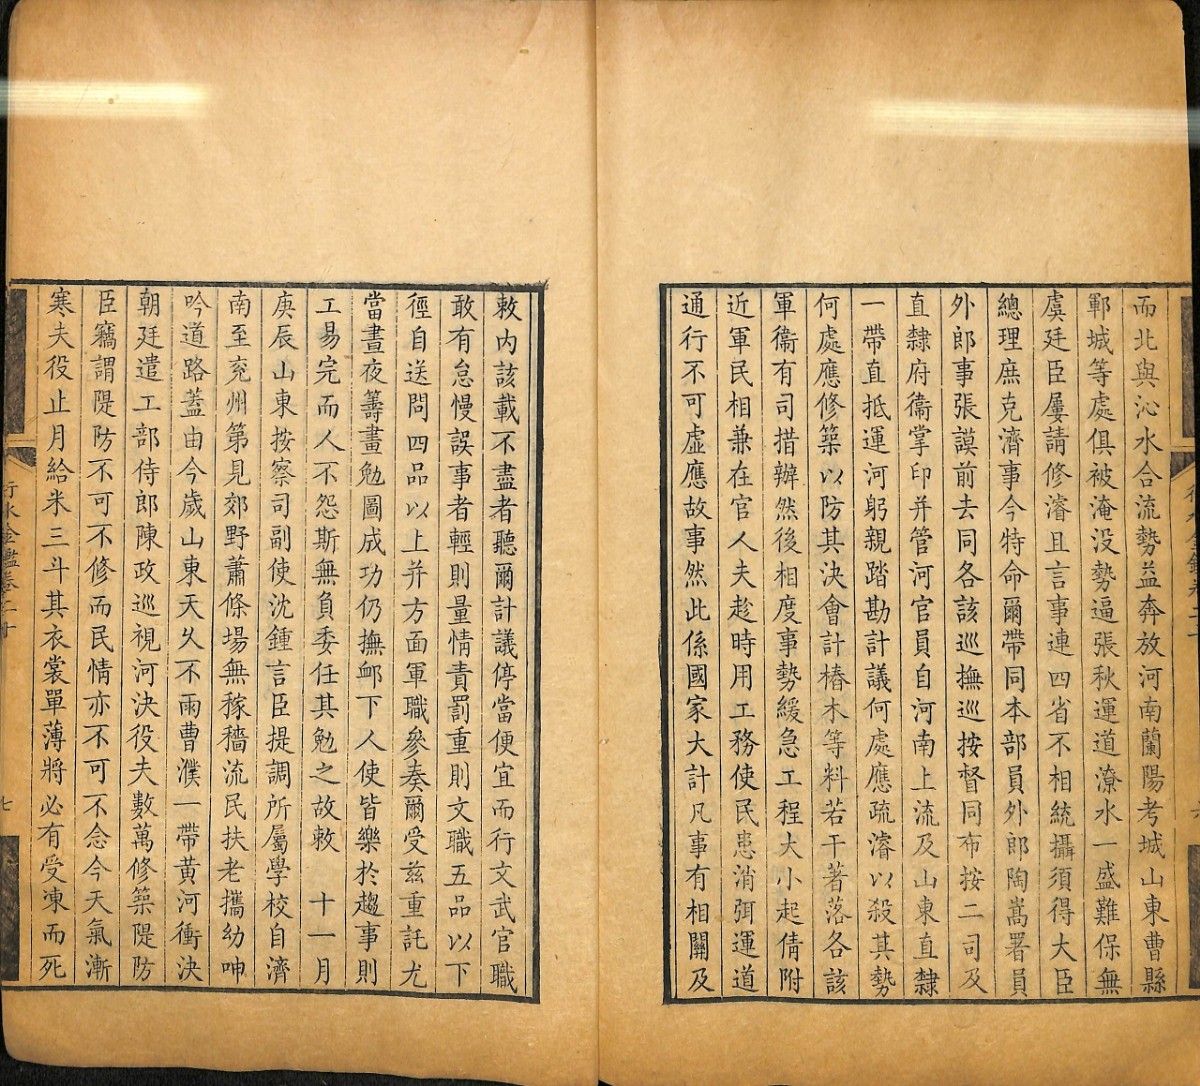 而北與沁水合流勢益奔放河南蘭陽考城山東曹縣
鄆城等處俱被淹没勢逼張秋運道潦水一盛難保無
虞廷臣屢請修濬且言事連四省不相統攝須得大臣
總理庶克濟事今特命爾帶同本部員外郎陶嵩署員
外郎事張謨前去同各該巡撫巡按督同布按二司及
直隸府衞掌印并管河官員自河南上流及山東直隸
一帶直抵運河躬親踏勘計議何處應疏濬以殺其勢
何處應修築以防其決會計樁木等料若干著落各該
軍衞有司措辦然後相度事勢緩急工程大小起倩附
近軍民相兼在官人夫趁時用工務使民患消弭運道
通行不可虚應故事然此係國家大計凡事有相關及
敕内該載不盡者聽爾計議停當便宜而行文武官職
敢有怠慢誤事者輕則量情責罰重則文職五品以下
徑自送問四品以上并方面軍職參奏爾受兹重託尤
當晝夜籌畫勉圖成功仍撫邺下人使皆樂於趨事則
工易完而人不怨斯無負委任其勉之故敕 十一月
庚辰山東按察司副使沈鍾言臣提調所屬學校自濟
南至兖州第見郊野蕭條場無稼穡流民扶老攜幼呻
吟道路蓋由今歲山東天久不雨曹濮一帶黄河衝決
朝廷遣工部侍郎陳政巡視河決役夫數萬修築隄防
臣竊謂隄防不可不修而民情亦不可不念今天氣漸
寒夫役止月給米三斗其衣裳單薄將必有受凍而死
行水金鑑卷二十
七